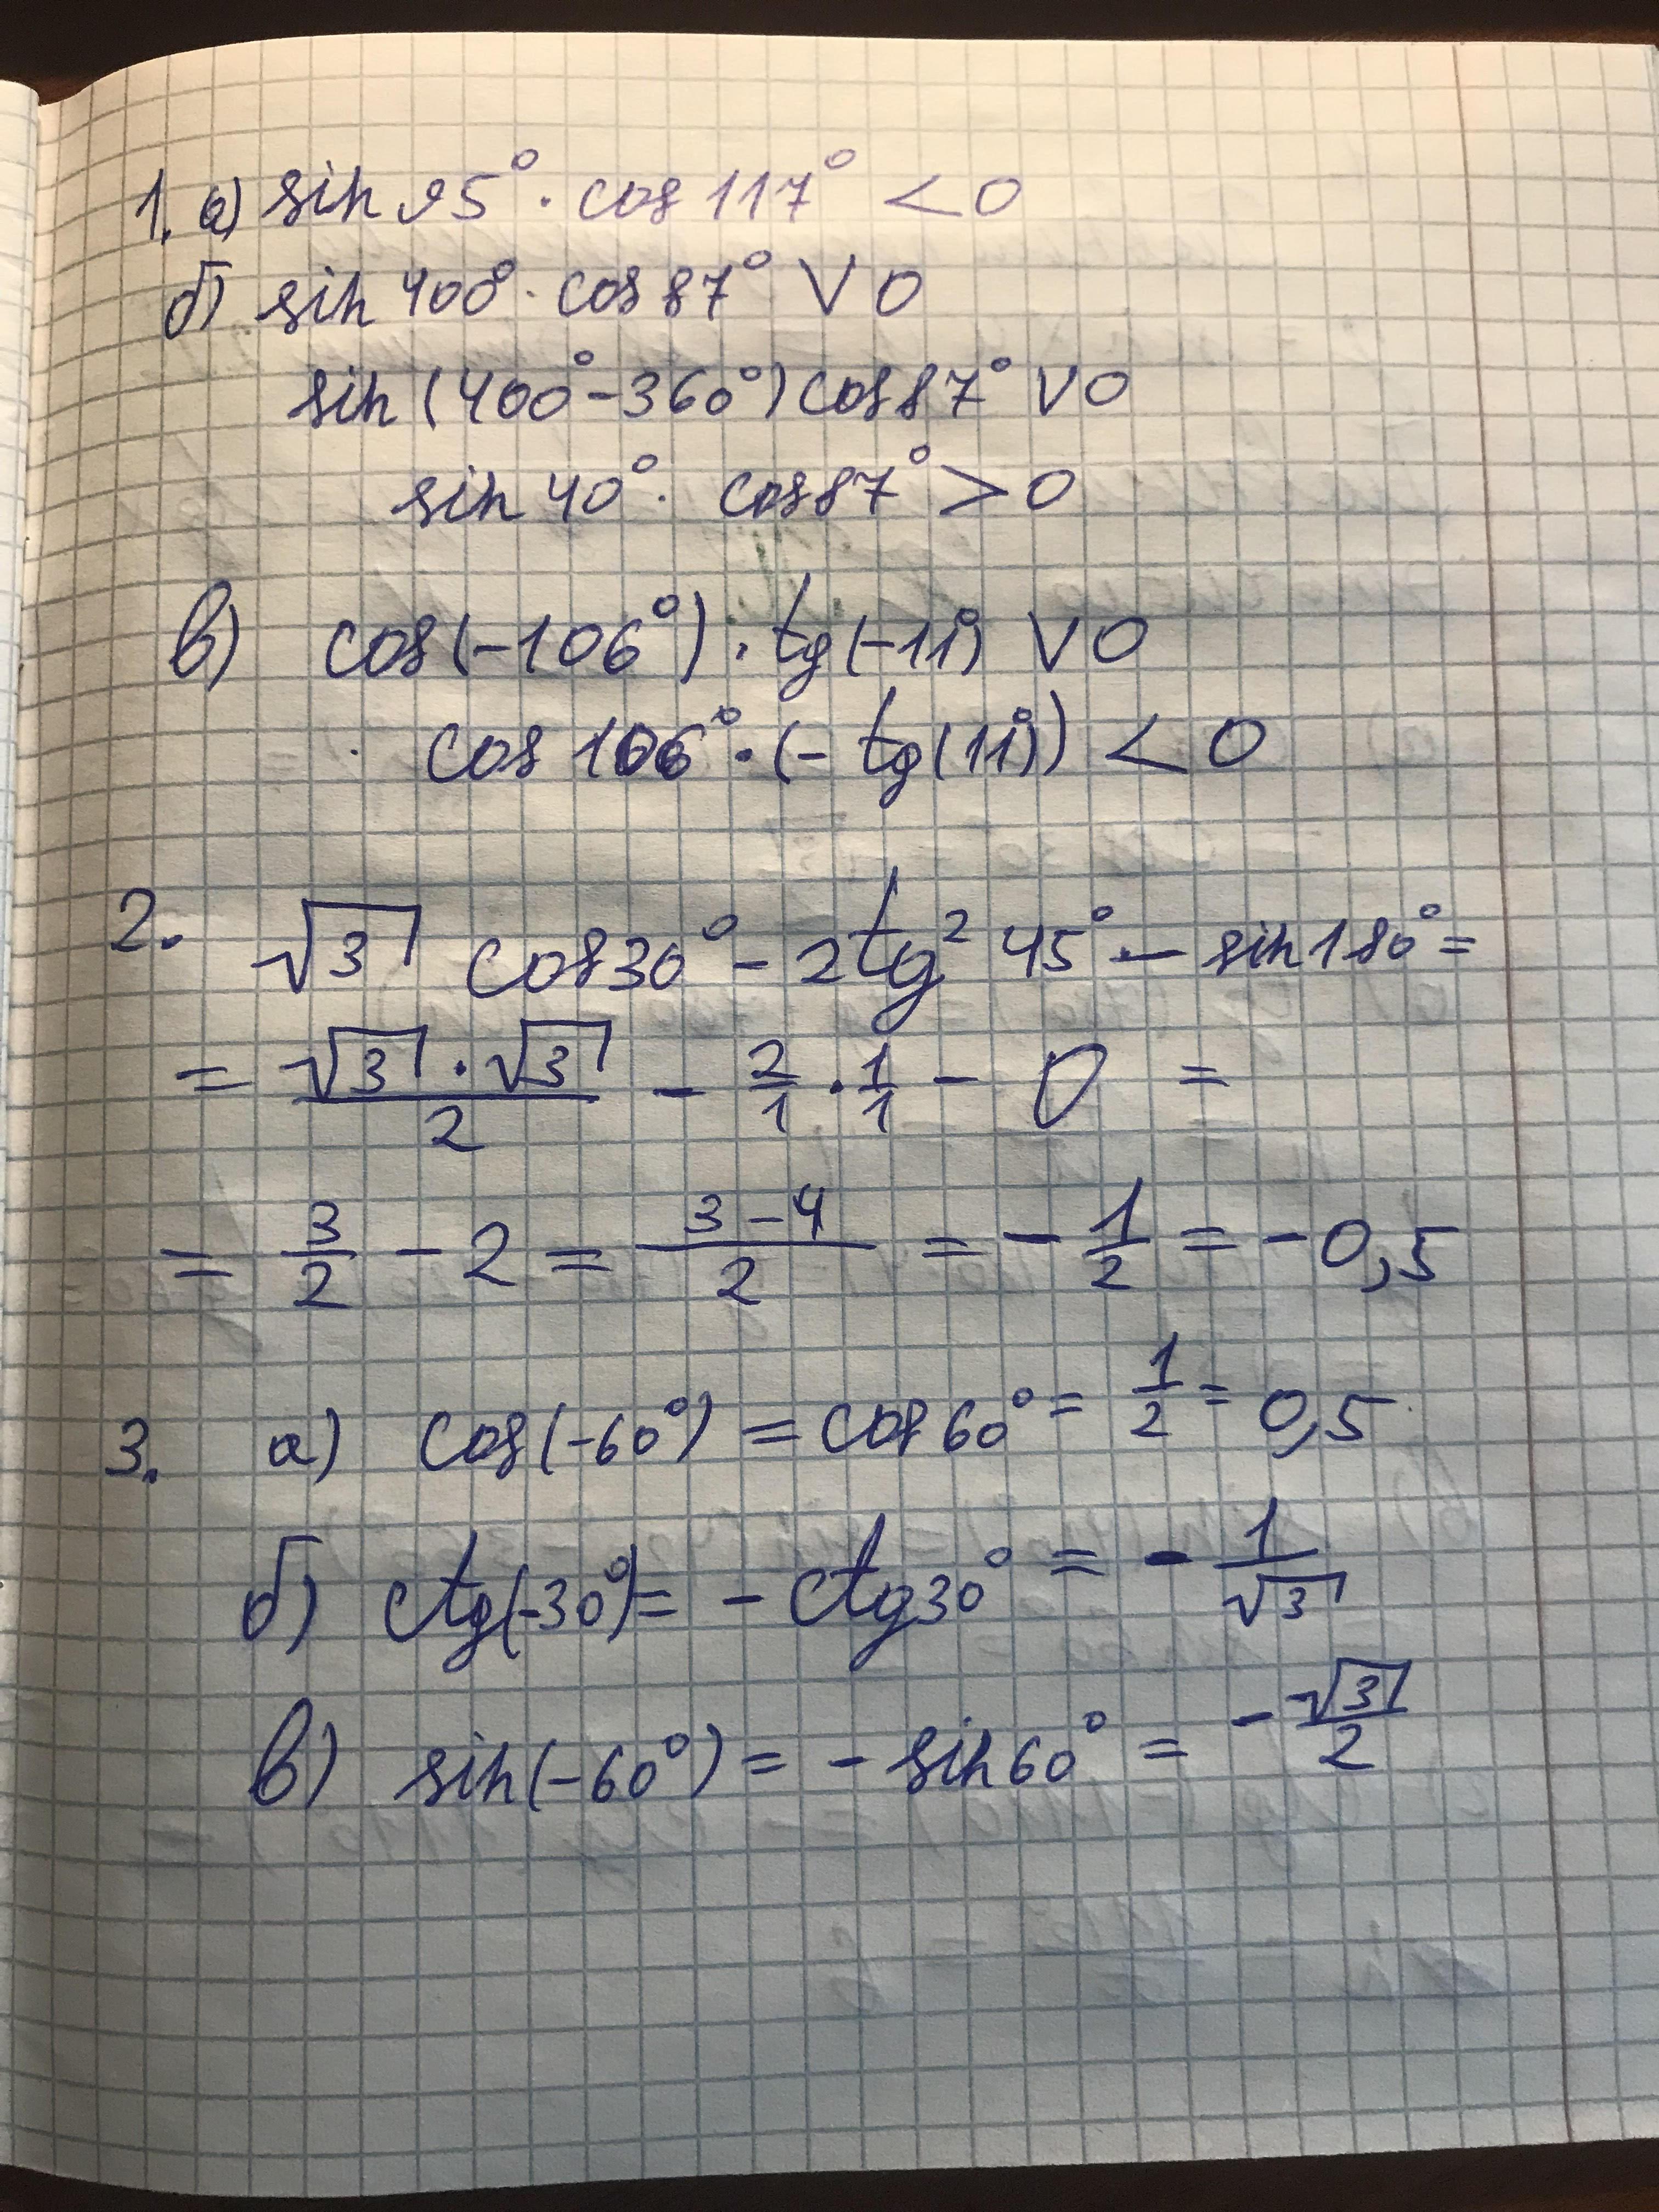 1. а) sin 95° · cos 117° < 0
б) sin 400° · cos 87° V 0
sin (400° - 360°) cos 87° V 0
sin 40° · cos 87° > 0
в) cos(-106°) · tg(-11°) V 0
cos 106° · (- tg(11°)) < 0
2. √3 cos 30° - 2tg² 45° - sin 180° =
= √3 · √3 / 2 - 2/1 · 1/1 - 0 =
= 3/2 - 2 = 3-4 / 2 = - 1/2 = -0,5
3. а) cos(-60°) = cos 60° = 1/2 = 0,5
б) ctg(-30°) = - ctg 30° = - 1/√3
в) sin(-60°) = - sin 60° = - √3/2